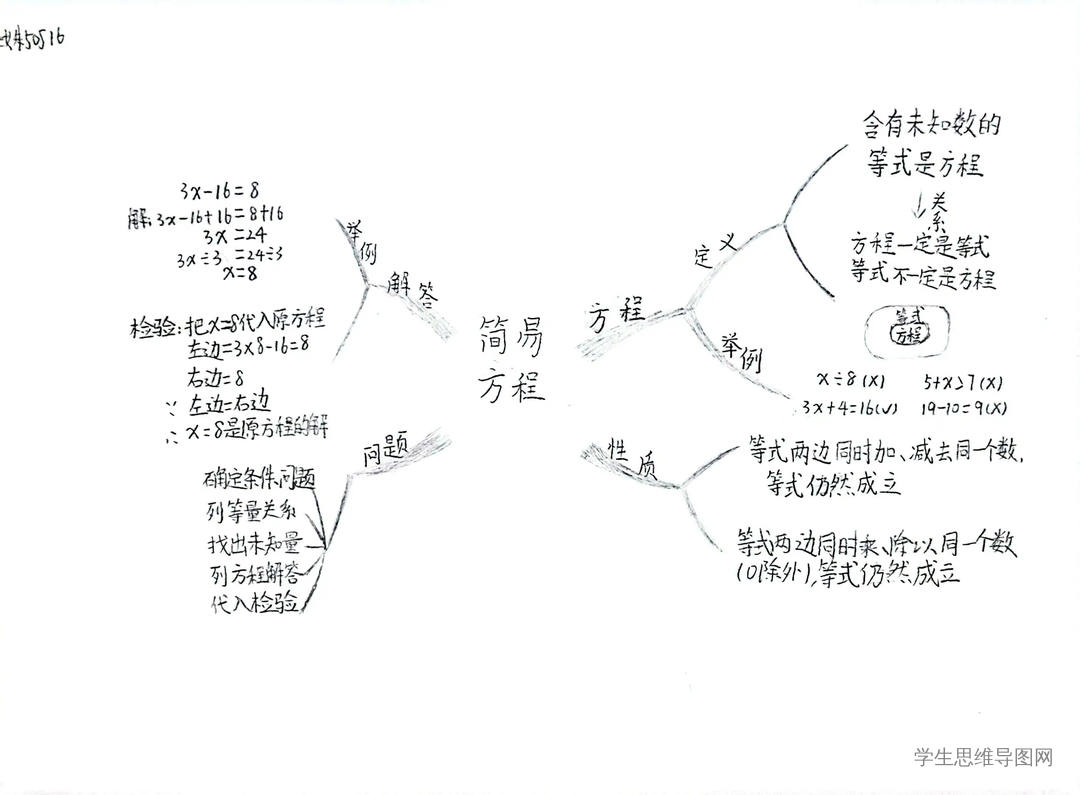 5051b
简易
方程
方程
定义
含有未知数的
等式是方程
关系
方程一定是等式
等式不一定是方程
等式
方程
举例
x÷8(x) 5+x>7(x)
3x+4=16(√) 19-10=9(x)
性质
等式两边同时加、减去同一个数,
等式仍然成立
等式两边同时乘、除以同一个数
(0除外),等式仍然成立
解答
举例
3x-16=8
解:3x-16+16=8+16
3x=24
3x÷3=24÷3
x=8
检验:把x=8代入原方程
左边=3×8-16=8
右边=8
∵ 左边=右边
∴ x=8是原方程的解
问题
确定条件、问题
列等量关系
找出未知量
列方程解答
代入检验
学生思维导图网